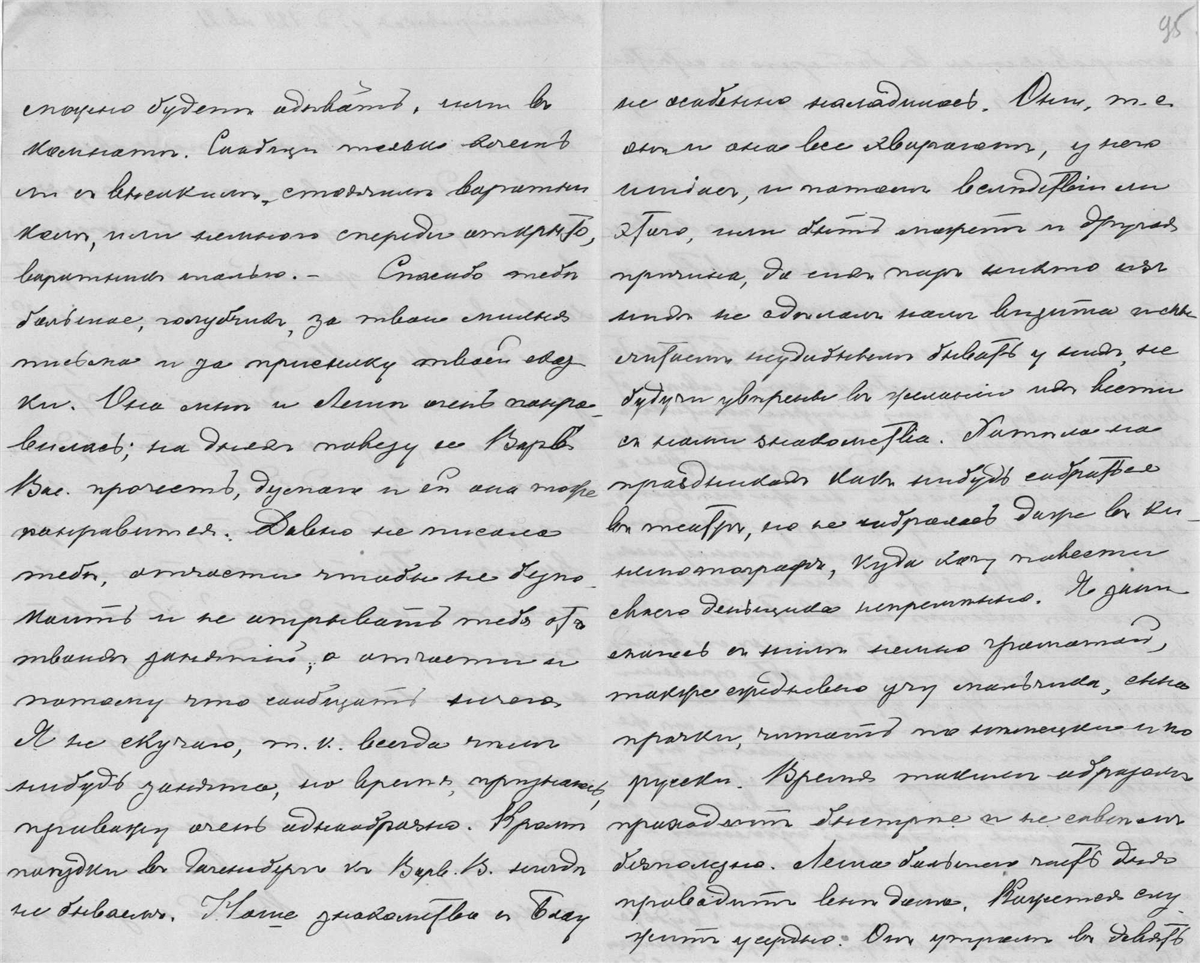 95
можно будетъ одѣвать, или въ
комнатѣ. Сообщи только хочешь
ли съ высокимъ, стоячимъ воротни
комъ, или немного спереди открыто,
воротника шалью. – Спасибо тебѣ
большое, голубчикъ, за твои милыя
письма и за присылку твоей сказ
ки. Она мнѣ и Лешѣ очень понра-
вилась; на дняхъ повезу ее Варв.
Вас. прочесть, думаю и ей она тоже
понравится. Давно не писала
тебѣ, отчасти чтобы не безпо-
коить и не отрывать тебя отъ
твоихъ занятій, а отчасти и
потому что сообщать нечего.
Я не скучаю, т. к. всегда чѣмъ
нибудь занята, но время, признаюсь,
провожу очень однообразно. Кромѣ
поѣздки въ къ Варв. В. нигдѣ
не бываемъ. Наше знакомство съ
не особенно наладилось. Они, т. е.
онъ и она все хвораютъ, у него
ишіасъ, и потомъ вслѣдствіи ли
этого, или быть можетъ и другая
причина, до сихъ поръ никто изъ
нихъ не сдѣлалъ намъ визита и мы
считаемъ неудобнымъ бывать у нихъ, не
будучи увѣрены въ желаніи ихъ вести
съ нами знакомство. Хотѣла на
праздникахъ какъ нибудь собраться
въ театръ, но не собралась даже въ ки-
нематографъ, куда хочу повести
своего деньщика непремѣнно. Я зани
маюсь съ нимъ немного грамотой,
также ежедневно учу мальчика, сына
прачки, читать по нѣмецки и по
русски. Время такимъ образомъ
проходитъ быстрѣе и не совсѣмъ
безполезно. Леша большую часть дня
проводитъ внѣ дома. Кажется слу
житъ усердно. Онъ утромъ въ девять